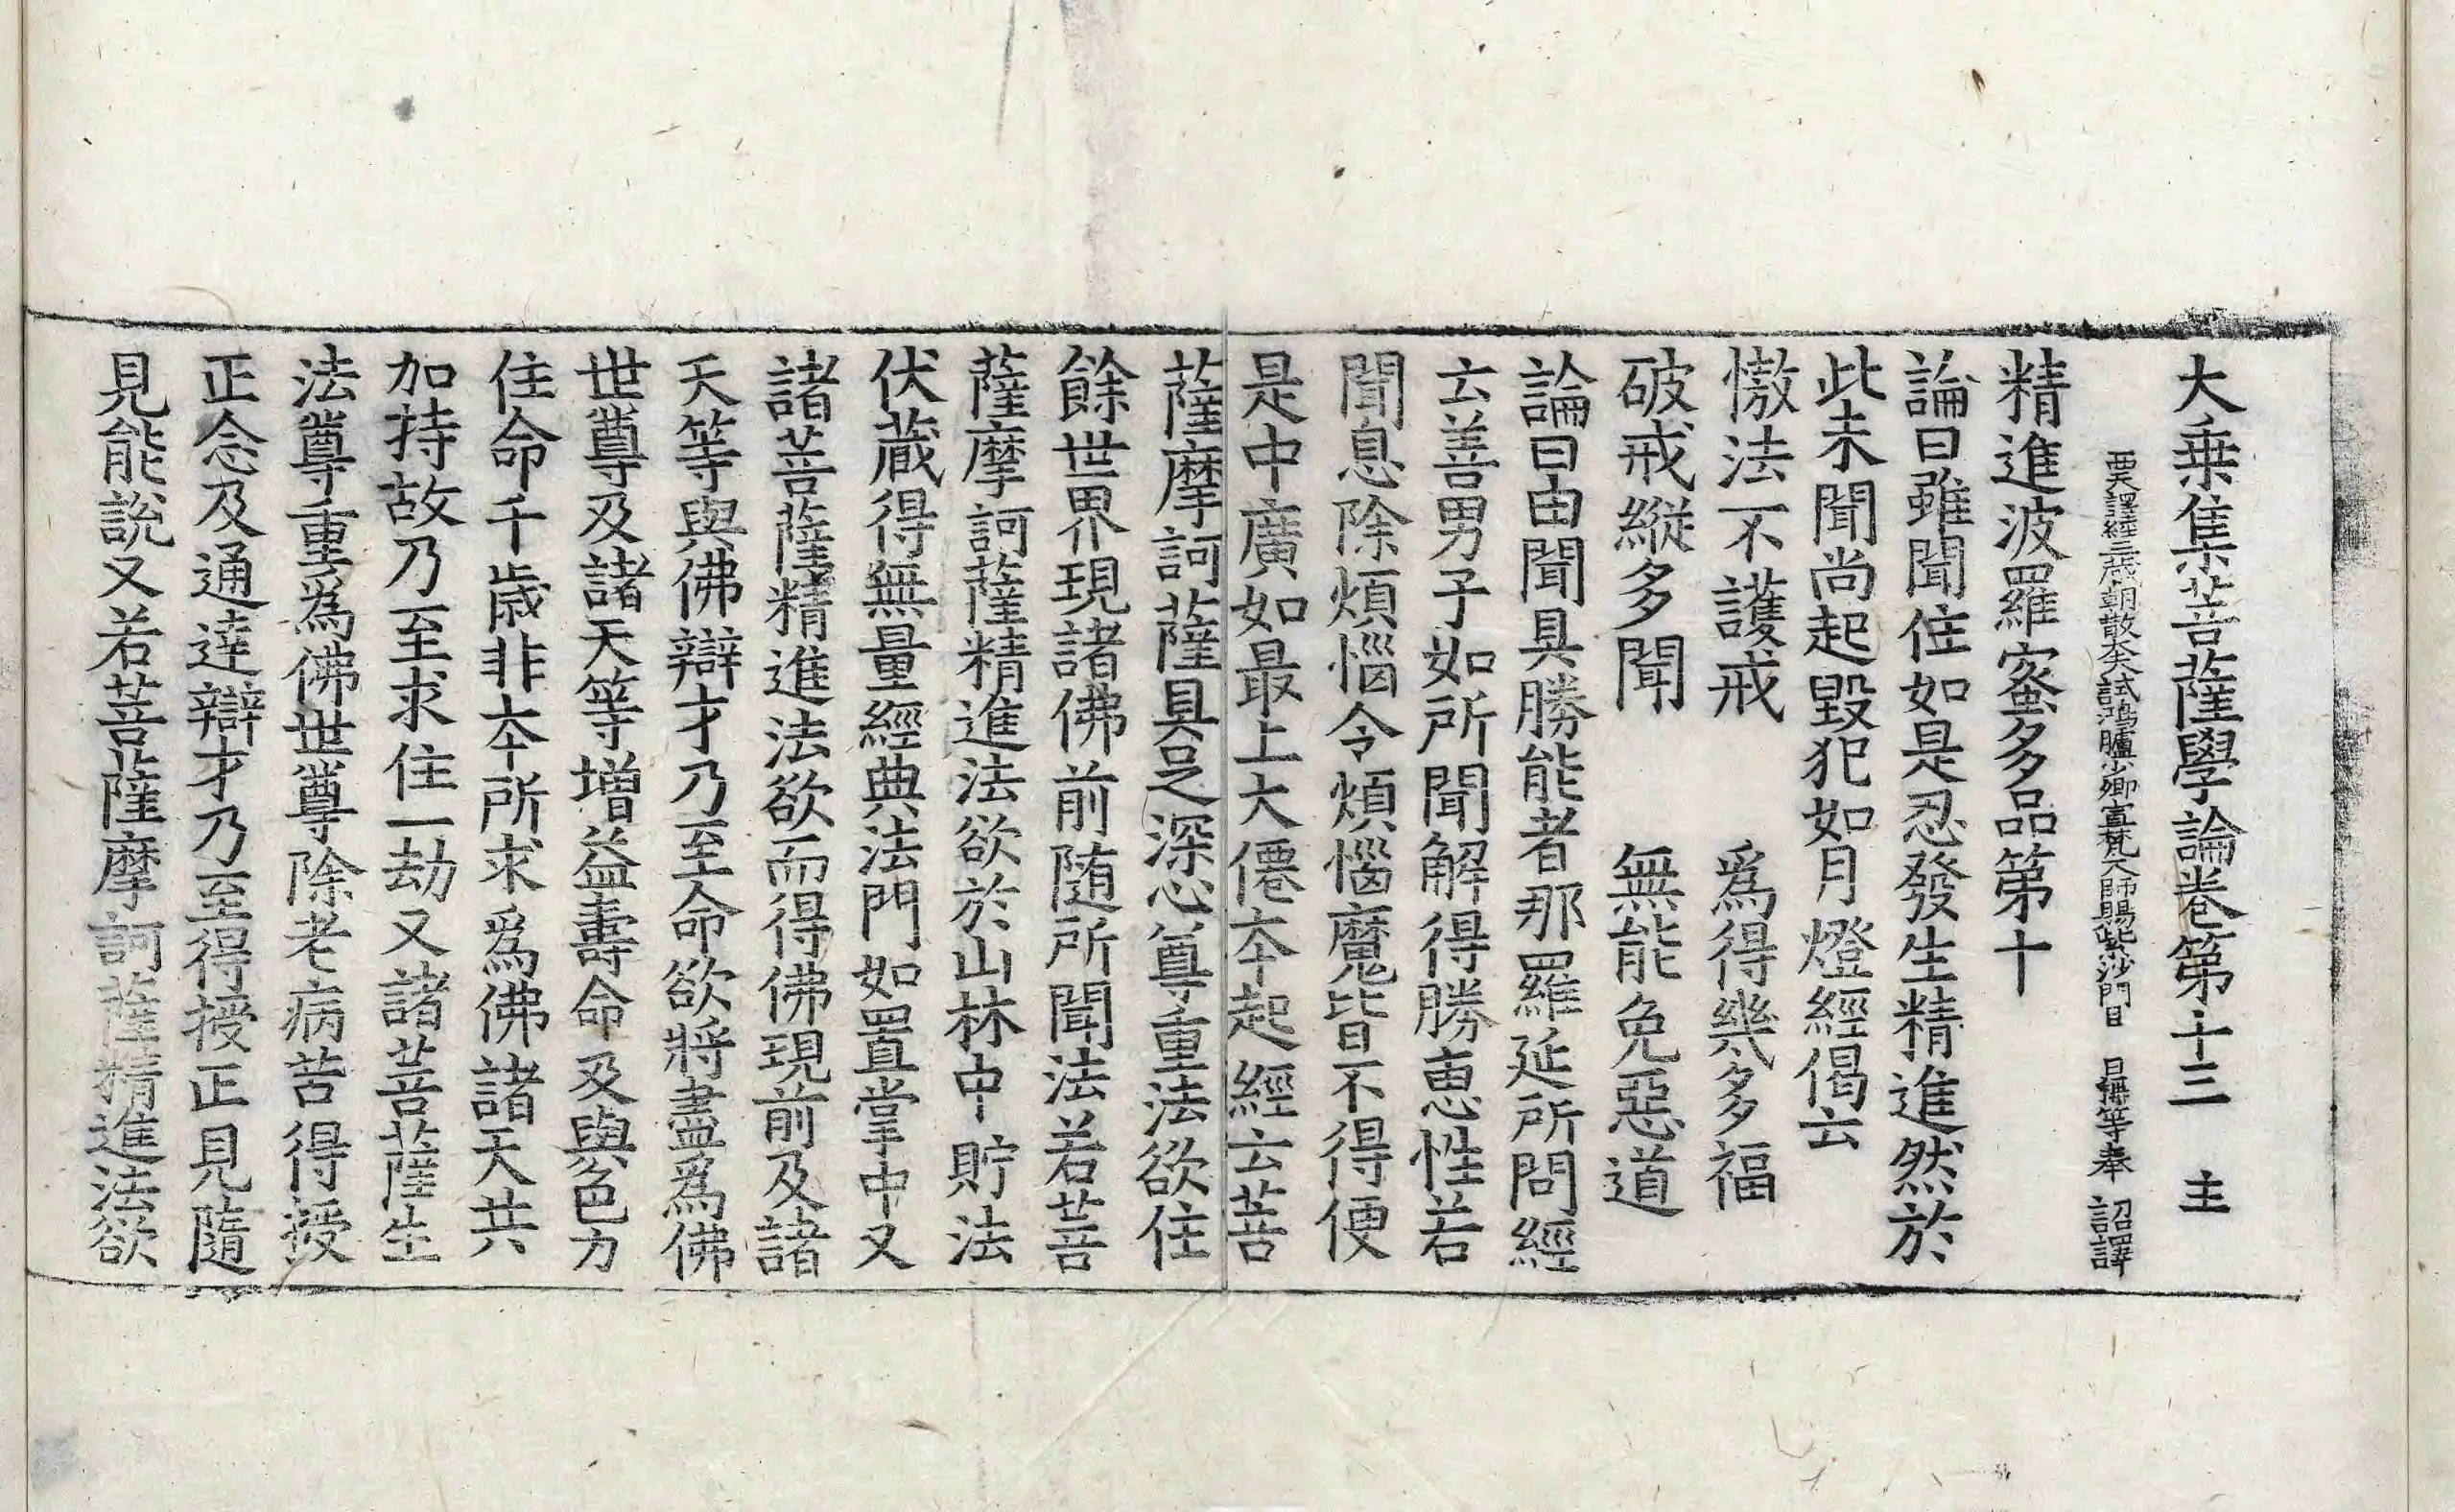 大乗集菩薩學論卷第十三　圭
西天譯經三藏朝散大夫試鴻臚少卿宣梵大師賜紫沙門臣　日稱等奉　詔譯
精進波羅蜜多品第十
論曰雖聞住如是忍發生精進然於
此未聞尚起毀犯如月燈經偈云
慠法不護戒　爲得幾多福
破戒縱多聞　無能免惡道
論曰由聞具勝能者那羅延所問經
云善男子如所聞解得勝恵性若
聞息除煩惱令煩惱魔皆不得便
是中廣如最上大僊夲起經云菩
薩摩訶薩具足深心尊重法欲住
餘世界現諸佛前随所聞法若菩
薩摩訶薩精進法欲於山林中貯法
伏蔵得無量經典法門如置掌中又
諸菩薩精進法欲而得佛現前及諸
天等與佛辯才乃至命欲將盡爲佛
世尊及諸天等增益壽命及與色力
住命千歳非夲所求爲佛諸天共
加持故乃至求住一劫又諸菩薩生
法尊重爲佛世尊除老病苦得授
正念及通達辯才乃至得授正見隨
見能說又若菩薩摩訶薩精進法欲